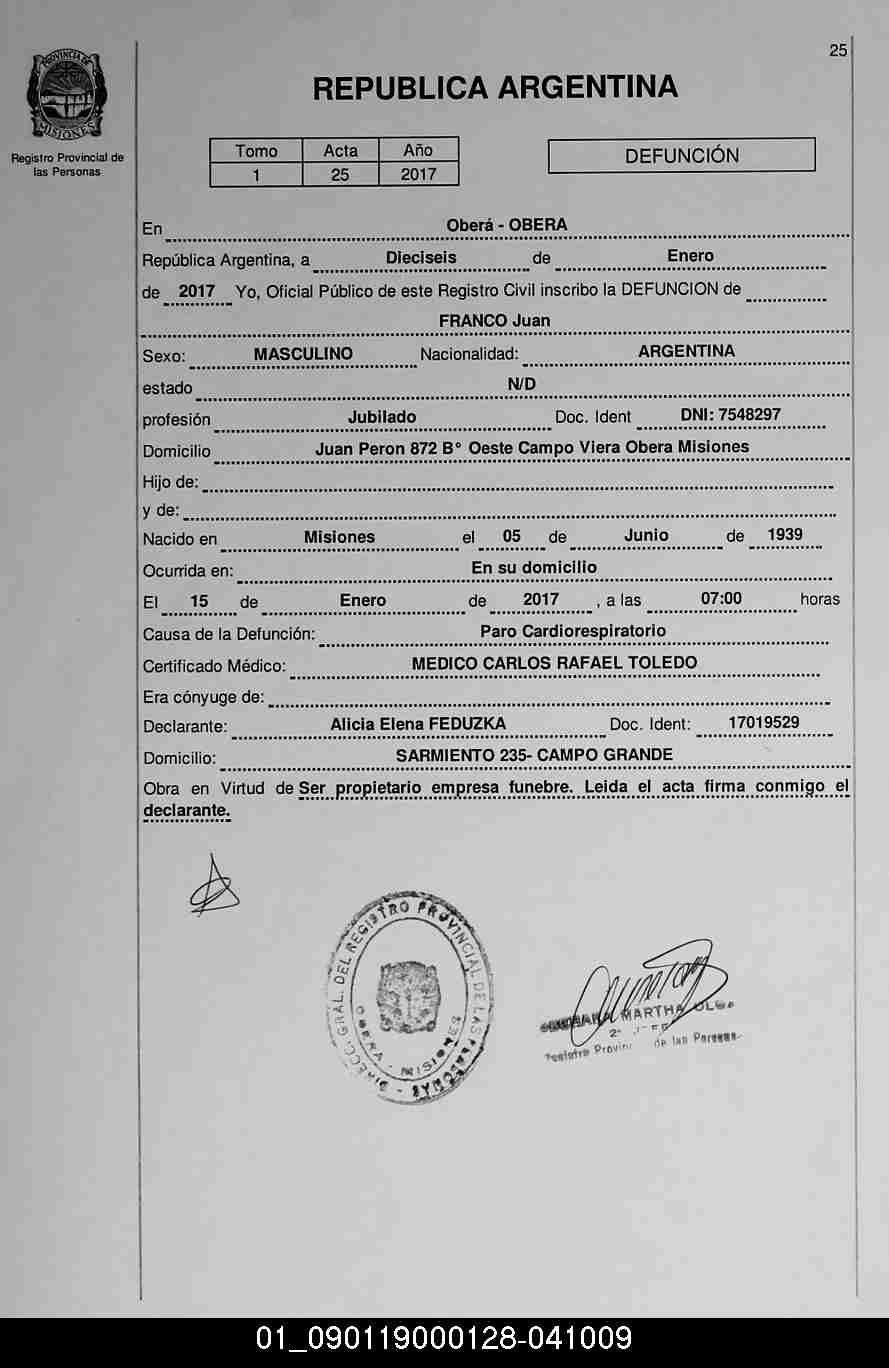 25
PROVINCIA DE
MISIONES
Registro Provincial de
las Personas
REPUBLICA ARGENTINA
Tomo Acta Año
1 25 2017
DEFUNCIÓN
En Oberá - OBERA
República Argentina, a Dieciseis de Enero
de 2017 Yo, Oficial Público de este Registro Civil inscribo la DEFUNCION de
FRANCO Juan
Sexo: MASCULINO Nacionalidad: ARGENTINA
estado N/D
profesión Jubilado Doc. Ident DNI: 7548297
Domicilio Juan Peron 872 B° Oeste Campo Viera Obera Misiones
Hijo de:
y de:
Nacido en Misiones el 05 de Junio de 1939
Ocurrida en: En su domicilio
El 15 de Enero de 2017 , a las 07:00 horas
Causa de la Defunción: Paro Cardiorespiratorio
Certificado Médico: MEDICO CARLOS RAFAEL TOLEDO
Era cónyuge de:
Declarante: Alicia Elena FEDUZKA Doc. Ident: 17019529
Domicilio: SARMIENTO 235- CAMPO GRANDE
Obra en Virtud de Ser propietario empresa funebre. Leida el acta firma conmigo el
declarante.
DIRECC. GRAL. DEL REGISTRO PROVINCIAL DE LAS PERSONAS
OBERA - MISIONES
MARTHA
de las Personas
01_090119000128-041009